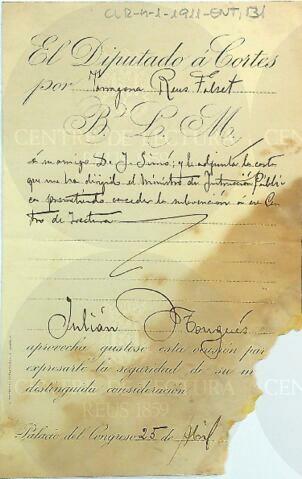 CLR-4-1-1911-ENT, 131
El Diputado á Cortes
por Tarragona Reus Falset
B. L. M.
á su amigo D. J. Simó; y le adjunta la carta
que me ha dirigido el Ministro de Instrucción Públi-
ca prometiendo conceder la subvención a ese Cen-
tro de Lectura
Julián Nougués
aprovecha gustoso esta ocasión par
expresarle la seguridad de su m
distinguida consideración
Palacio del Congreso 25 de Abril
CENTRO DE LECTURA
REUS 1859